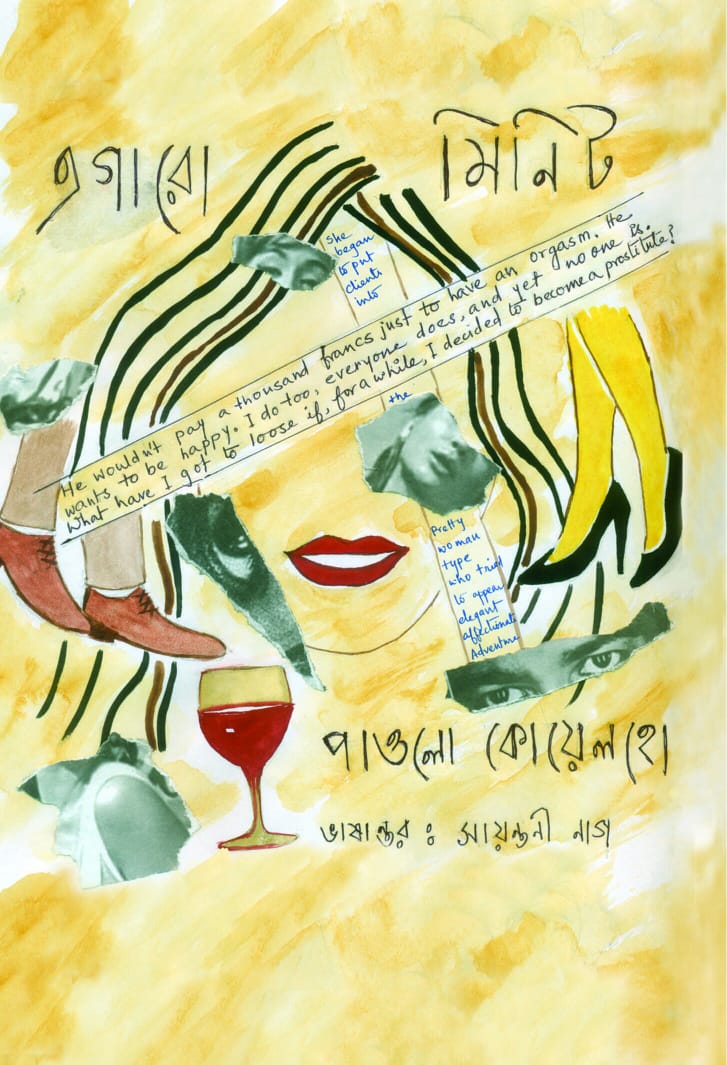 এগারো মিনিট
She
began
to put
clients
into
He wouldn't pay a thousand francs just to have an orgasm. He
wants to be happy. I do too, everyone does, and yet no one is.
What have I got to loose if, for a while, I decided to become a prostitute?
the
Pretty
woman
type
who tried
to appear
elegant
affectionate
Adventure
পাওলো কোয়েলহো
ভাষান্তর : সায়ন্তনী নাগ